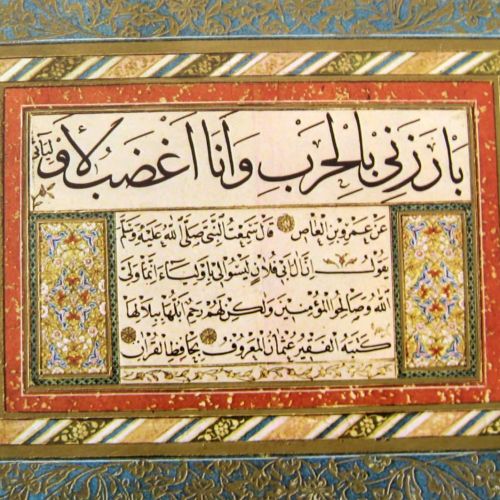 بَارَزَنِي بِالْحَرْبِ وَاَنَا اَغْضَبُ لِأَوْلِيَائى
عَنْ عَمْرِو بْنِ الْعَاصِ قَالَ سَمِعْتُ النَّبِيَّ صَلَّى اللّٰهُ عَلَيْهِ وَسَلَّمَ
يَقُولُ اِنَّ آلَ اَبِي فُلَانٍ لَيْسُوا لِي بِاَوْلِيَاءَ اِنَّمَا وَلِيِّيَ
اللّٰهُ وَصَالِحُوا الْمُؤْمِنِينَ وَلٰكِنْ لَهُمْ رَحِمٌ اَبُلُّهَا بِبِلَالِهَا
كتبه الفقير عثمان المعروف بحافظ القرآن